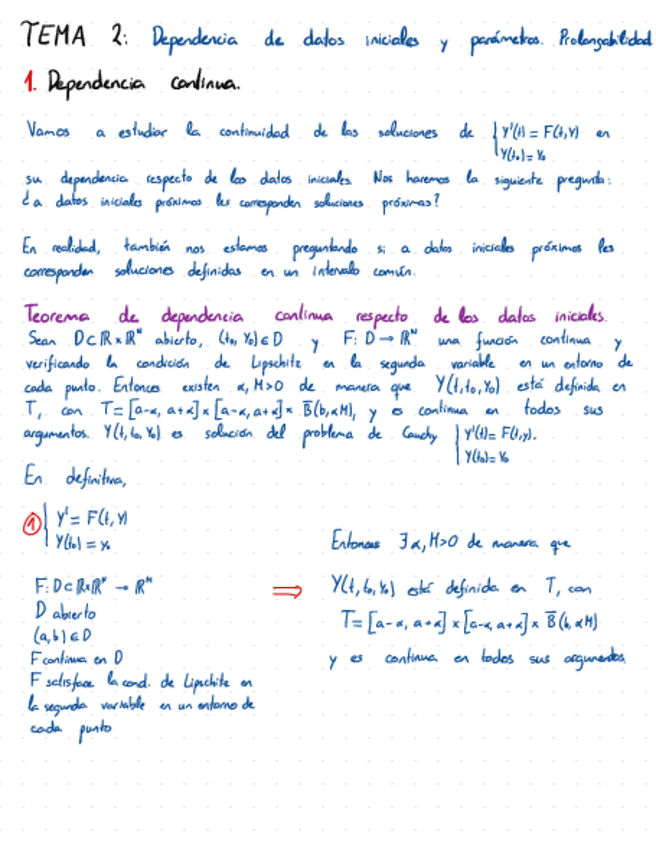 TEMA 2: Dependencia de datos iniciales y parámetros. Prolongabilidad
1. Dependencia continua.
Vamos a estudiar la continuidad de las soluciones de { Y'(t) = F(t,Y) en
Y(t₀) = Y₀
su dependencia respecto de los datos iniciales. Nos haremos la siguiente pregunta:
¿a datos iniciales próximos les corresponden soluciones próximas?
En realidad, también nos estamos preguntando si a datos iniciales próximos les
corresponden soluciones definidas en un intervalo común.
Teorema de dependencia continua respecto de los datos iniciales.
Sean D⊂ℝ×ℝᴺ abierto, (t₀, Y₀)∈D y F: D → ℝᴺ una función continua y
verificando la condición de Lipschitz en la segunda variable en un entorno de
cada punto. Entonces existen α, M>0 de manera que Y(t,t₀,Y₀) está definida en
T, con T = [a-α, a+α] × [a-α, a+α] × B̅(b,αM), y es continua en todos sus
argumentos. Y(t, t₀, Y₀) es solución del problema de Cauchy { Y'(t) = F(t,y).
Y(t₀) = Y₀
En definitiva,
① { Y' = F(t, Y)
Y(t₀) = Y₀
Entonces ∃ α, M>0 de manera que
F: D⊂ℝ×ℝᴺ → ℝᴺ ⟹ Y(t, t₀, Y₀) está definida en T, con
D abierto
T = [a-α, a+α] × [a-α, a+α] × B̅(b, αM)
(a,b)∈D
F continua en D
y es continua en todos sus argumentos.
F satisface la cond. de Lipschitz en
la segunda variable en un entorno de
cada punto